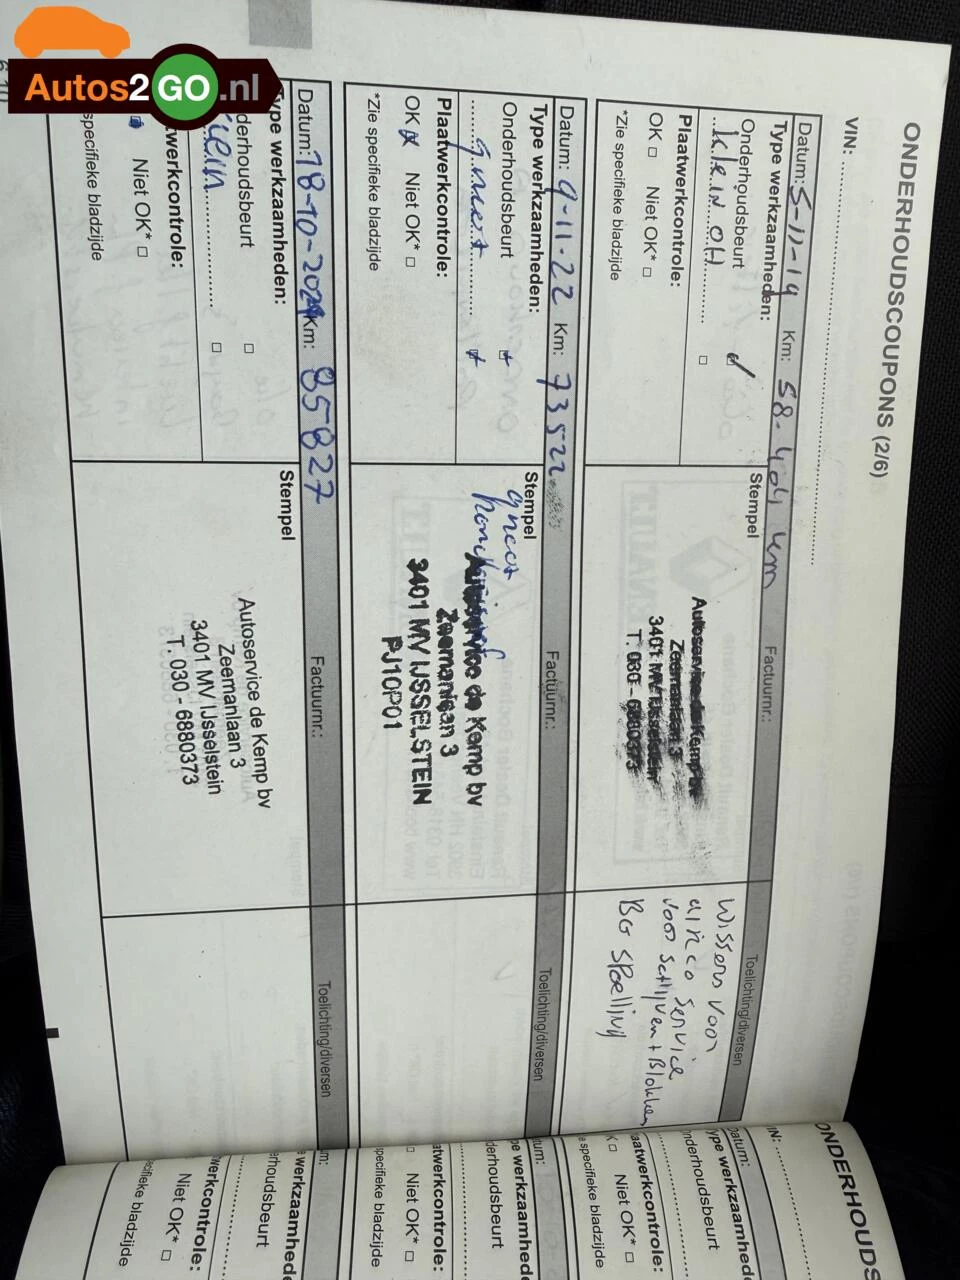 Autos2GO.nl
ONDERHOUDSCOUPONS (2/6)
VIN:
Datum: 5-11-19 Km: 58.404 km Factuurnr.: Toelichting/diversen
Type werkzaamheden:
Onderhoudsbeurt
klein OH
Plaatwerkcontrole:
OK □ Niet OK* □
*Zie specifieke bladzijde
Stempel
Autoservice de Kemp bv
Zeemanlaan 3
3401 MV IJsselstein
T. 030 - 6880373
Wissers voor
airco service
voor schijven + Blokken
BG spoeling
Datum: 9-11-22 Km: 73522 Factuurnr.: Toelichting/diversen
Type werkzaamheden:
Onderhoudsbeurt
groot
Plaatwerkcontrole:
OK Niet OK* □
*Zie specifieke bladzijde
Stempel
groot
Autoservice de Kemp bv
Zeemanlaan 3
3401 MV IJSSELSTEIN
PJ10P01
Datum: 18-10-2024 Km: 85827 Factuurnr.: Toelichting/diversen
ype werkzaamheden:
derhoudsbeurt
klein
twerkcontrole:
Niet OK* □
specifieke bladzijde
Stempel
Autoservice de Kemp bv
Zeemanlaan 3
3401 MV IJsselstein
T. 030 - 6880373
ONDERHOUDS
IN:
Datum:
ype werkzaamhed
nderhoudsbeurt
aatwerkcontrole:
K □ Niet OK* □
e specifieke bladzijde
tum:
pe werkzaamhed
derhoudsbeurt
atwerkcontrole:
□ Niet OK* □
specifieke bladzijde
m:
e werkzaamhede
erhoudsbeurt
werkcontrole:
Niet OK* □
cifieke bladzijde